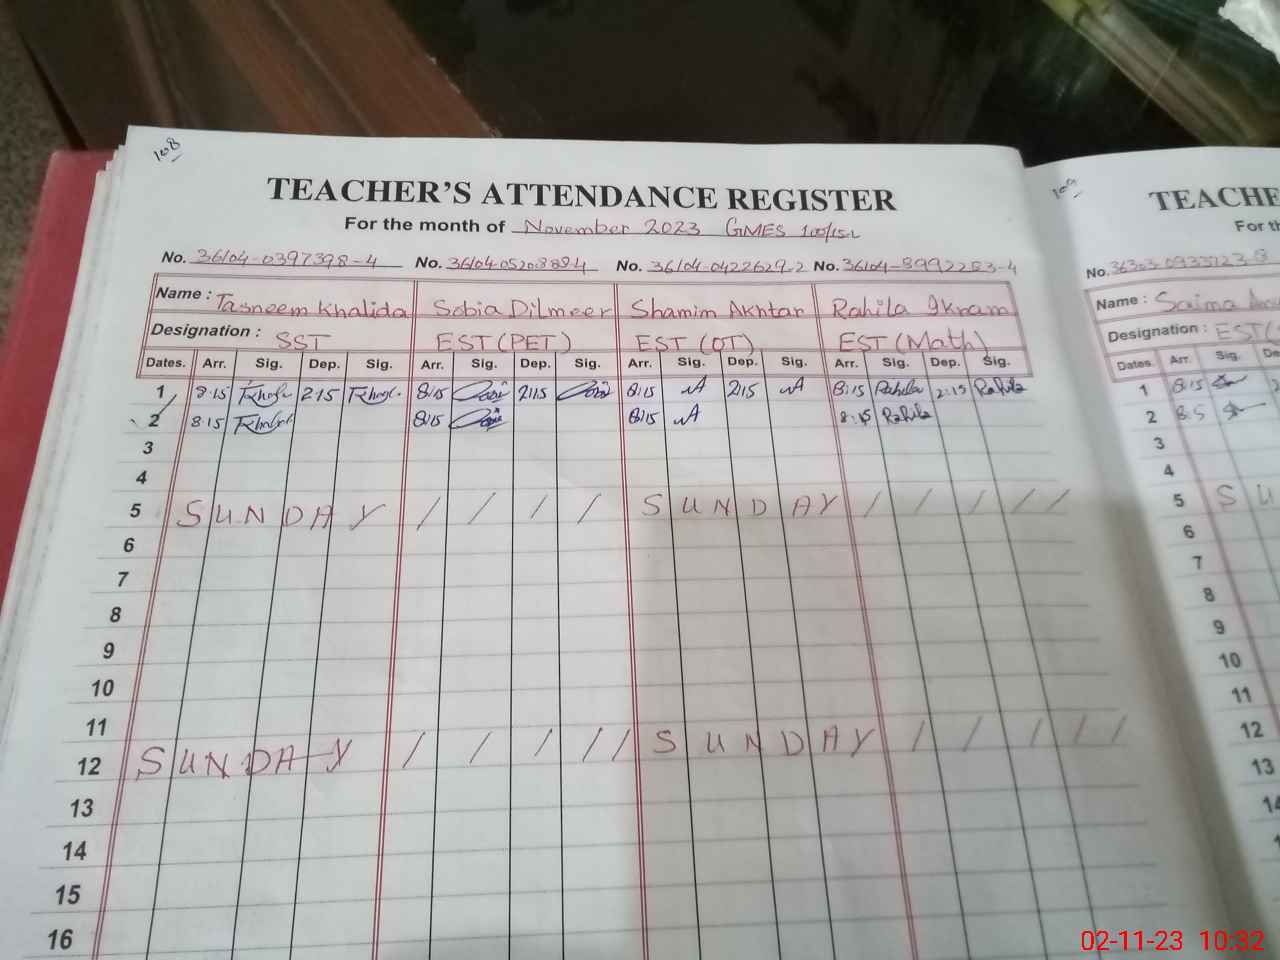 108
TEACHER'S ATTENDANCE REGISTER
For the month of November 2023 GMES 100/15L
No. 36104-0397398-4 No. 36104-0520889-1 No. 36104-0422629-2 No. 36104-8992253-4
Name : Tasneem Khalida Sobia Dilmeer Shamim Akhtar Rahila Ikram
Designation : SST EST (PET) EST (OT) EST (Math)
Dates. Arr. Sig. Dep. Sig. Arr. Sig. Dep. Sig. Arr. Sig. Dep. Sig. Arr. Sig. Dep. Sig.
1 8:15 2:15 8:15 2:15 8:15 2:15 8:15 Rahila 2:15 Rahila
2 8:15 8:15 8:15 8:15 Rahila
3
4
5 SUNDAY / / / / SUNDAY / / / / / /
6
7
8
9
10
11
12 SUNDAY / / / / / SUNDAY / / / / /
13
14
15
16
109
TEACHE
For th
No. 36303-0933723-8
Name : Saima
Designation : EST (
Dates. Arr. Sig. De
1 8:15 2
2 8:5
3
4
5 SU
6
7
8
9
10
11
12
13
14
02-11-23 10:32